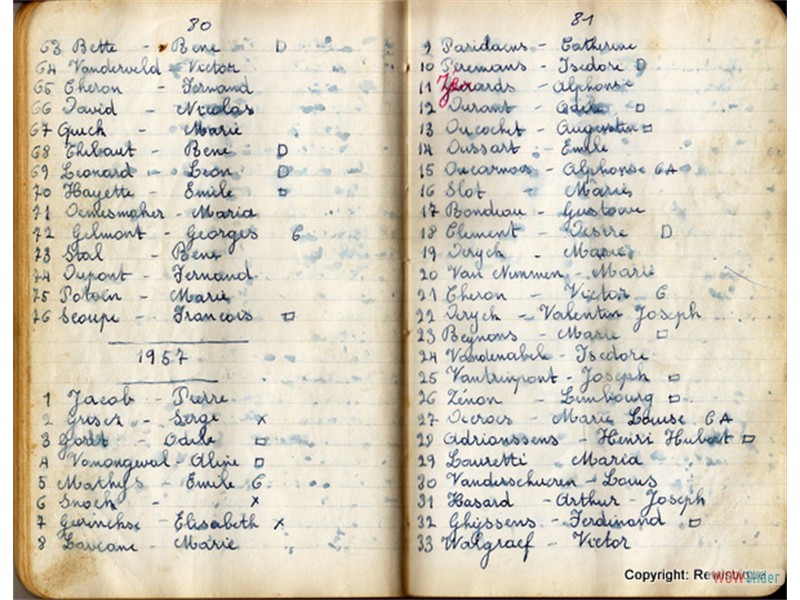 80
63 Bette - Rene D
64 Vanderveld - Victor
65 Cheron - Fernand
66 David - Nicolas
67 Guch - Marie
68 Thibaut - Rene D
69 Leonard - Leon D
70 Hayette - Emile □
71 Demesmaker - Maria
72 Gilmont - Georges G
73 Stal - Rene
74 Dupont - Fernand
75 Potvin - Marie
76 Scoupe - Francois □
1957
1 Jacob - Pierre
2 Gresez - Serge x
3 Joret - Odile □
4 Vanongeval - Aline □
5 Mathys - Emile G
6 Snoeh - x
7 Guerinckx - Elisabeth x
8 - Marie
81
9 Paridaens - Catherine
10 Peremans - Isedore D
11 - Alphonse
12 Durant - Odile □
13 Ducochet - Augustin □
14 Dussart - Emile
15 Ducarmois - Alphonse GA
16 Slot - Marie
17 Bondeau - Gustave
18 Clement - Desire D
19 Deryck - Marie
20 Van Nimmen - Marie
21 Cheron - Victor G
22 Deryck - Valentin Joseph
23 Beynons - Marie □
24 Vandenabel - Isedore
25 Vantrinpont - Joseph □
26 Zénon - Limbourg □
27 Decroes - Marie Louise GA
28 Adrianssens - Henri Hubert □
29 Louretti Maria
30 Vanderschueren - Louis
31 Hasard - Arthur - Joseph
32 Ghijssens - Ferdinand □
33 Walgraef - Victor
Copyright:
WOWSlider